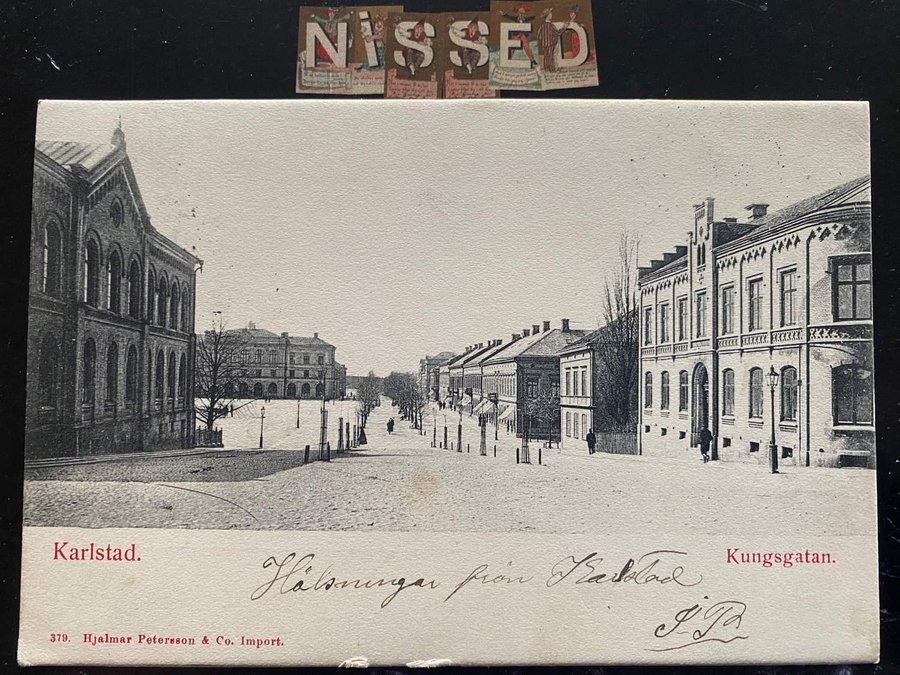 NiSSED
Karlstad.
Kungsgatan.
Hälsningar från Karlstad
379. Hjalmar Petersson & Co. Import.